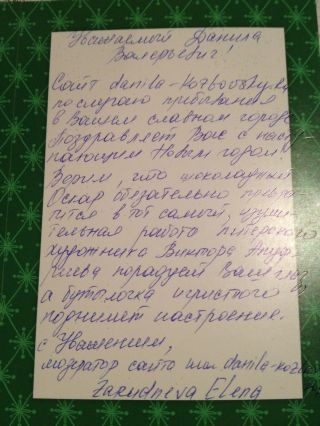 Уважаемый Данила
Валерьевич!
Сайт danila-kozlovskiy.ru
по случаю прибывания
в Вашем славном городе
поздравляет Вас с наступ
пающим Новым годом!
Верим, что шоколадный
Оскар обязательно превра-
тится в тот самый,
тельная работа питерского
художника Виктора
порадует Ваш
а бутылочка игристого
поднимет настроение.
с Уважением,
модератор сайта www.danila-kozl
Zarudneva Elena